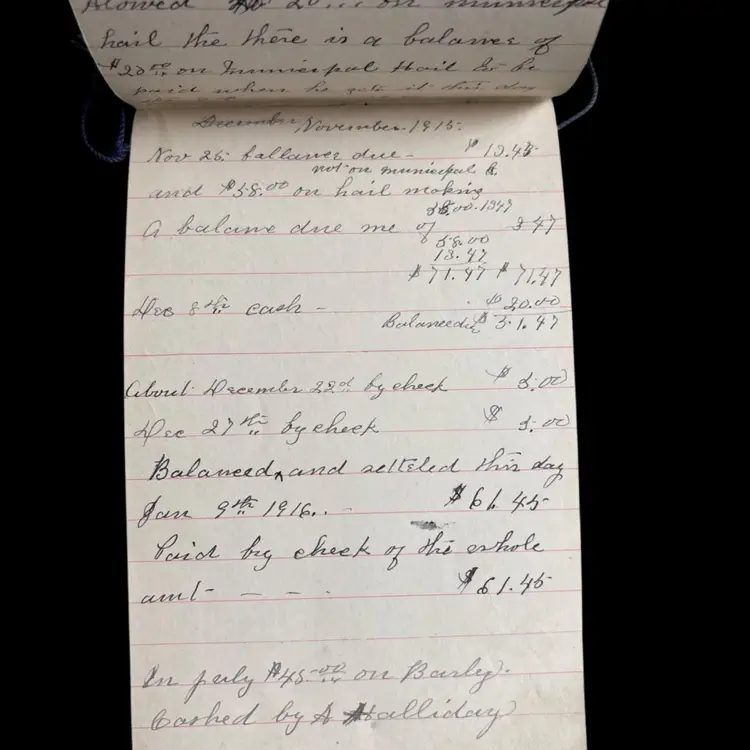 on municipal
hail the there is a balance of
$20.00 on Municipal Hail to be
paid when he gets it this day
December November. 1915.
Nov 25 ballance due - $13.45
not on municipal h.
and $58.00 on hail making
58.00.1347
A balance due me of 347
58.00
13.47
$71.47 $71.47
Dec 8th cash - $20.00
Balance due $51.47
About December 22d by check $5.00
Dec 27th by check $5.00
Balanced, and setteled this day
Jan 9th 1916.. - $61.45
Paid by check of the whole
amt - - - - $61.45
In july $45.00 on Barly.
Cashed by A Halliday